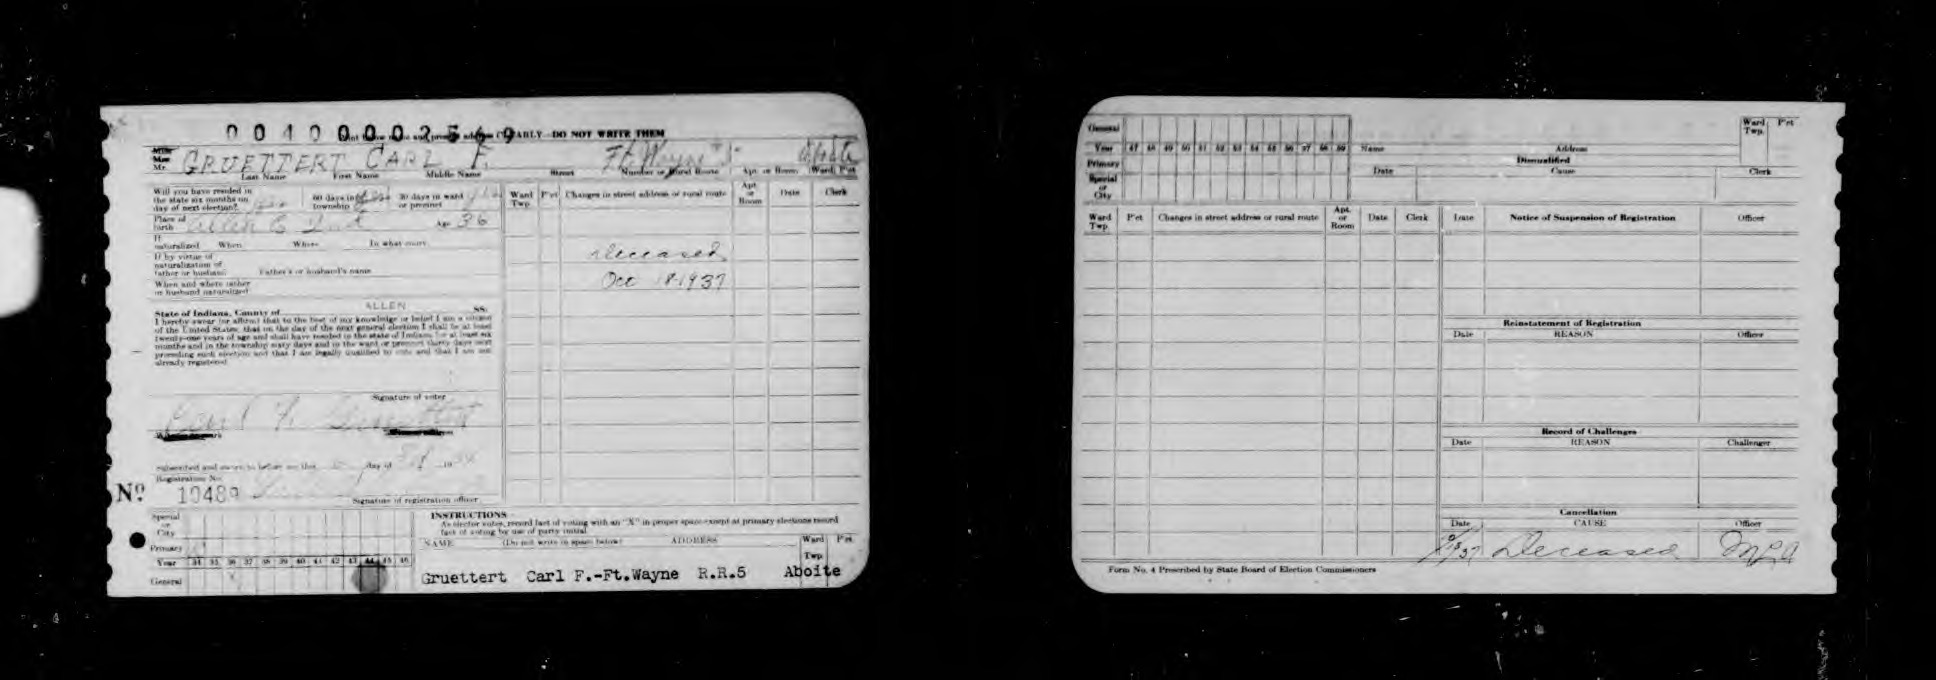 00400002569
Print below name and present address CLEARLY—DO NOT WRITE THEM
Miss
Mrs.
Mr. GRUETTERT CARL F. Ft. Wayne #5 Aboite
Last Name First Name Middle Name Street Number or Rural Route Apt. or Room Ward P'ct
Will you have resided in
the state six months on
day of next election? Yes 60 days in township 30 days in ward or precinct
Place of birth Allen Co Ind Age 36
If naturalized When Where In what court
If by virtue of
naturalization of
father or husband Father's or husband's name
When and where father
or husband naturalized
Ward Twp. P'ct Changes in street address or rural route Apt. or Room Date Clerk
Deceased
Oct 18-1937
ALLEN
State of Indiana, County of SS:
I hereby swear (or affirm) that to the best of my knowledge or belief I am a citizen
of the United States; that on the day of the next general election I shall be at least
twenty-one years of age and shall have resided in the state of Indiana for at least six
months and in the township sixty days and in the ward or precinct thirty days next
preceding such election and that I am legally qualified to vote and that I am not
already registered.
Signature of voter
Carl F. Gruettert
Subscribed and sworn to before me this day of 19
Registration No.
No. 10489
Signature of registration officer
Special or City
Primary
Year 34 35 36 37 38 39 40 41 42 43 44 45 46
General
INSTRUCTIONS
As elector votes, record fact of voting with an "X" in proper space except at primary elections record
fact of voting by use of party initial.
NAME (Do not write in space below) ADDRESS Ward Twp. P'ct
Gruettert Carl F.-Ft.Wayne R.R.5 Aboite
General
Year 47 48 49 50 51 52 53 54 55 56 57 58 59
Primary
Special or City
Name Address Ward Twp. P'ct
Disqualified
Date Cause Clerk
Ward Twp. P'ct Changes in street address or rural route Apt. or Room Date Clerk
Date Notice of Suspension of Registration Officer
Reinstatement of Registration
Date REASON Officer
Record of Challenges
Date REASON Challenger
Cancellation
Date CAUSE Officer
Deceased
Form No. 4 Prescribed by State Board of Election Commissioners